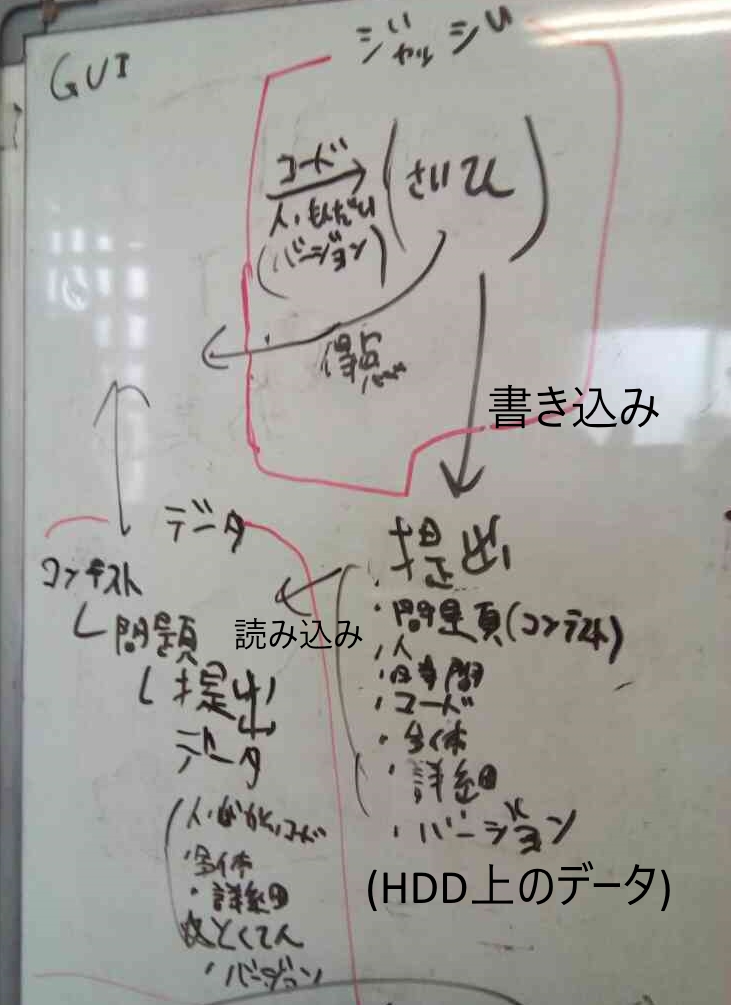 GUI
ジャッジ
コード
人・もんだい
(バージョン)
(さいひ)
得点
書き込み
データ
コンテスト
└ 問題
└ 提出
データ
人・じかん・コード
・全体
・詳細
・とくてん
・バージョン
読み込み
提出
・問題(コンテスト)
・人
・時間
・コード
・全体
・詳細
・バージョン
(HDD上のデータ)